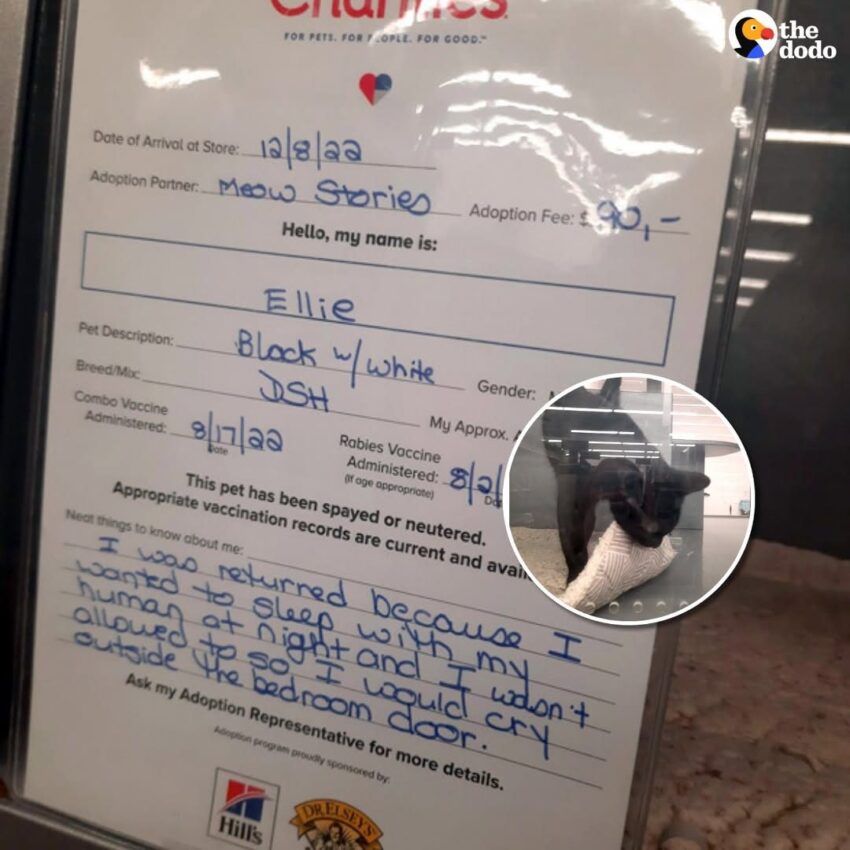 Charities
FOR PETS. FOR PEOPLE. FOR GOOD.™
the
dodo
Date of Arrival at Store: 12/8/22
Adoption Partner: Meow Stories Adoption Fee: $ 90,-
Hello, my name is:
Ellie
Pet Description: Black w/ white Gender:
Breed/Mix: DSH My Approx.
Combo Vaccine
Administered: 8/17/22
Date
Rabies Vaccine
Administered: 8/2/
(If age appropriate)
This pet has been spayed or neutered.
Appropriate vaccination records are current and
Neat things to know about me:
I was returned because I
wanted to sleep with my
human at night and I wasn't
allowed to so I would cry
outside the bedroom door.
Ask my Adoption Representative for more details.
Adoption program proudly sponsored by:
Hill's
DR. ELSEY'S